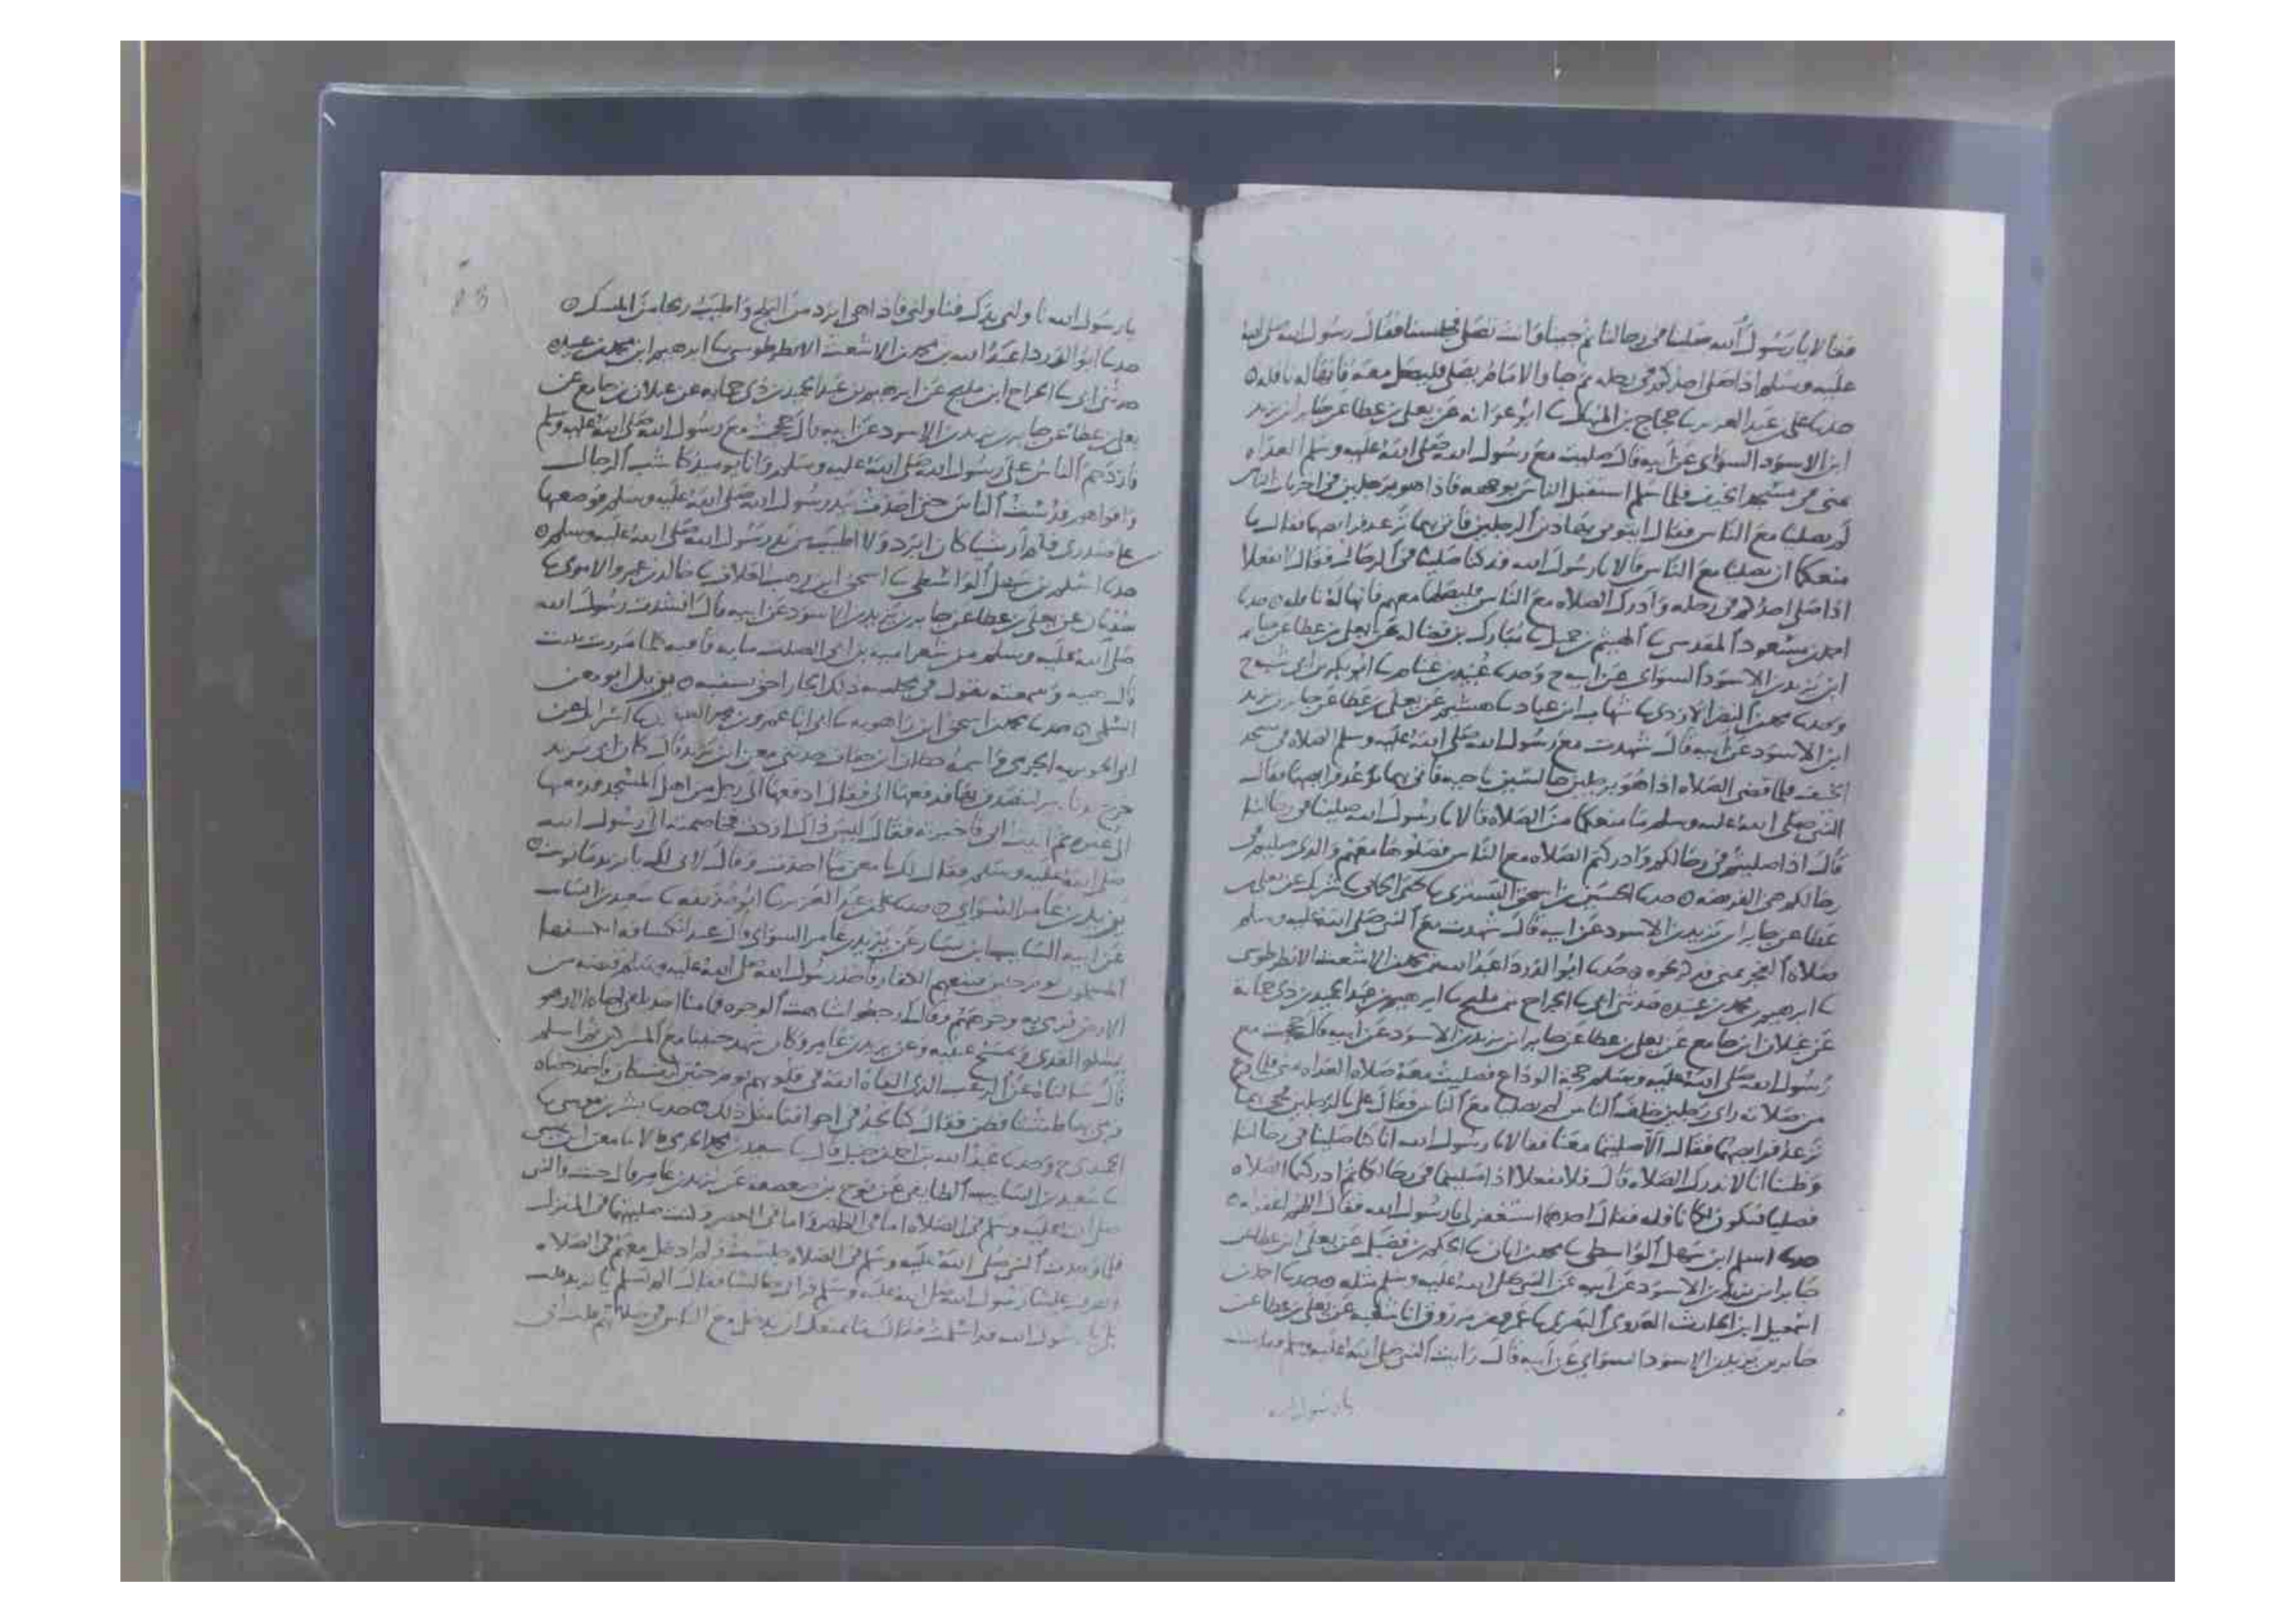 فقالا يا رسول الله صلينا في رحالنا ثم جينا وانت تصلي فجلسنا فقال رسول الله صلى الله
عليه وسلم اذا صلى احدكم في رحله ثم جا والامام يصلي فليصل معه فانها له نافله ه
حدثنا علي بن عبد العزيز ثنا حجاج بن المنهال ثنا ابو عوانه عن يعلى بن عطا عن جابر بن يزيد
ابن الاسود السواي عن ابيه قال صليت مع رسول الله صلى الله عليه وسلم الغداه
بمنى في مسجد الخيف فلما سلم استقبل الناس بوجهه فاذا هو برجلين في اخريات الناس
لم يصليا مع الناس فقال ايتوني بهاذين الرجلين فاتي بهما ترعد فرايصهما فقال ما
منعكما ان تصليا مع الناس قالا يا رسول الله قد كنا صلينا في الرحال فقال لا تفعلا
اذا صلى احدكم في رحله وادرك الصلاه مع الناس فليصلها معهم فانها له نافله ه حدثنا
احمد بن مسعود المقدسي ثنا الهيثم بن جميل ثنا مبارك بن فضاله عن يعلى بن عطا عن جابر
ابن يزيد بن الاسود السواي عن ابيه ح وحدثنا عبيد بن غنام ثنا ابو بكر بن ابي شيبه ح
وحدثنا محمد بن النضر الازدي ثنا شهاب ابن عباد ثنا هشيم عن يعلى بن عطا عن جابر بن يزيد
ابن الاسود عن ابيه قال شهدت مع رسول الله صلى الله عليه وسلم الصلاه في مسجد
الخيف فلما قضى الصلاه اذا هو برجلين جالسين ناحيه فاتي بهما ترعد فرايصهما فقال
النبي صلى الله عليه وسلم ما منعكما من الصلاه قالا يا رسول الله صلينا في رحالنا
قال اذا صليتم في رحالكم وادركتم الصلاه مع الناس فصلوها معهم والذي صليتم في
رحالكم هي الفريضه ه حدثنا الحسين بن اسحق التستري ثنا يحيى الحماني ثنا شريك عن يعلى بن
عطا عن جابر ابن يزيد بن الاسود عن ابيه قال شهدت مع النبي صلى الله عليه وسلم
صلاه الفجر بمنى فذكر نحوه ه حدثنا ابو الدردا عبد الله بن محمد بن الاشعث الانطرطوسي
ثنا ابرهيم بن محمد بن عبيده حدثني ابي ثنا الجراح بن مليح ثنا ابرهيم بن عبد الحميد بن ذي حمايه
عن غيلان ابن جامع عن يعلى بن عطا عن جابر ابن يزيد بن الاسود عن ابيه قال حججت مع
رسول الله صلى الله عليه وسلم حجة الوداع فصليت معه صلاه الغداه بمنى فلما فرغ
من صلاته راى رجلين خلف الناس لم يصليا مع الناس فقال علي بالرجلين فجي بهما
ترعد فرايصهما فقال الا صليتما معنا فقالا يا رسول الله انا كنا صلينا في رحالنا
وظننا انا لا ندرك الصلاه قال فلا تفعلا اذا صليتما في رحالكما ثم ادركتما الصلاه
فصليا فتكون لكما نافله فقال احدهما استغفر لي يا رسول الله فقال اللهم اغفر له ه
حدثنا اسلم ابن سهل الواسطي ثنا محمد بن ابان ثنا الحكم بن فضيل عن يعلى ابن عطا عن
جابر ابن يزيد بن الاسود عن ابيه عن النبي صلى الله عليه وسلم مثله ه حدثنا احمد بن
اسمعيل ابن الحارث العدوي البصري ثنا عمرو بن مرزوق انا شعبه عن يعلى بن عطا عن
جابر بن يزيد بن الاسود السواي عن ابيه قال رايت النبي صلى الله عليه وسلم فقلت
يا رسول الله
يا رسول الله ناولني يدك فناولني فاذا هي ابرد من الثلج واطيب ريحا من المسك ه
حدثنا ابو الدردا عبد الله بن محمد بن الاشعث الانطرطوسي ثنا ابرهيم ابن محمد بن عبيده
حدثني ابي ثنا الجراح ابن مليح عن ابرهيم بن عبد الحميد بن ذي حمايه عن غيلان بن جامع عن
يعلى بن عطا عن جابر بن يزيد بن الاسود عن ابيه قال حججت مع رسول الله صلى الله عليه وسلم
فازدحم الناس على رسول الله صلى الله عليه وسلم وانا يوميذ كاشب الرجال
واقواهم فزحمت الناس حتى اخذت بيد رسول الله صلى الله عليه وسلم فوضعتها
على صدري فلم ار شيا كان ابرد ولا اطيب من يد رسول الله صلى الله عليه وسلم ه
حدثنا اسلم بن سهل الواسطي ثنا اسحق ابن وهب العلاف ثنا خالد بن عمرو الاموي ثنا
سفيان عن يعلى بن عطا عن جابر بن يزيد بن الاسود عن ابيه قال انشدت رسول الله
صلى الله عليه وسلم من شعر اميه بن ابي الصلت مايه قافيه كلما مررت ببيت
قال هيه وسمعته يقول في مجلسه ذلك
السلمي ه حدثنا محمد بن اسحق ابن راهويه ثنا ابي انا عمرو بن محمد ثنا اسرايل عن
ابو الجويريه الجرمي واسمه حطان ابن خفاف حدثني معن ابن يزيد قال كان ابي يزيد
خرج بدنانير ليتصدق بها فدفعها الى فقال ادفعها الى رجل من اهل المسجد فدفعها
الى غيره ثم اتيت ابي فاخبرته فقال ليس ذاك اردت فخاصمته الى رسول الله
صلى الله عليه وسلم فقال لك يا معن ما اخذت وقال لابي لك يا يزيد ما نويت ه
يزيد بن عامر السواي ه حدثنا علي بن عبد العزيز ثنا ابو حذيفه ثنا سعيد بن السايب
عن ابيه السايب ابن يسار عن يزيد بن عامر السواي قال عند انكشافه انكشفها
المسلمون يوم حنين فتبعهم الكفار فاخذ رسول الله صلى الله عليه وسلم قبضه من
الارض فرمى بها وجوههم وقال ارجعوا شاهت الوجوه فما منا احد يلقى اخاه الا وهو
يشكو القذى ويمسح عينيه وعن يزيد بن عامر وكان شهد حنينا مع المشركين ثم اسلم
قال سالناه عن الرعب الذي القاه الله في قلوبهم يوم حنين كيف كان فاخذ حصاه
فرمى بها طستا فطن فقال كنا نجد في اجوافنا مثل ذلك ه حدثنا بشر بن موسى ثنا
الحميدي ح وحدثنا عبد الله بن احمد بن حنبل قال ثنا سعيد بن محمد الجرمي قالا ثنا معن ابن عيسى
ثنا سعيد بن السايب الطايفي عن نوح بن صعصعه عن يزيد بن عامر قال جيت والنبي
صلى الله عليه وسلم في الصلاه اما في الظهر واما في العصر وكنت صليتهما في المنزل
فلما وجدت النبي صلى الله عليه وسلم في الصلاه جلست ولم ادخل معهم في الصلاه
وانصرف علينا رسول الله صلى الله عليه وسلم فراني جالسا فقال الم تسلم يا يزيد قلت
بلى يا رسول الله قد اسلمت فقال ما منعك ان تدخل مع الناس في صلاتهم قلت اني